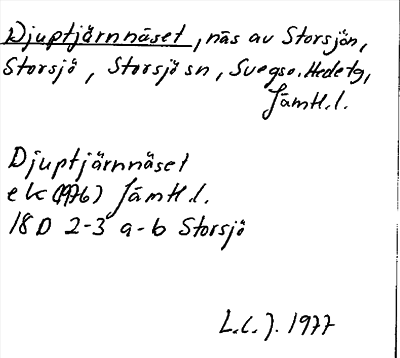 Djuptjärnnäset, näs av Storsjön,
Storsjö, Storsjö sn, Svegs o. Hede tg,
Jämtl.l.
Djuptjärnnäset
ek (1976) Jämtl.l.
18 D 2-3 a-b Storsjö
L.C.J. 1977